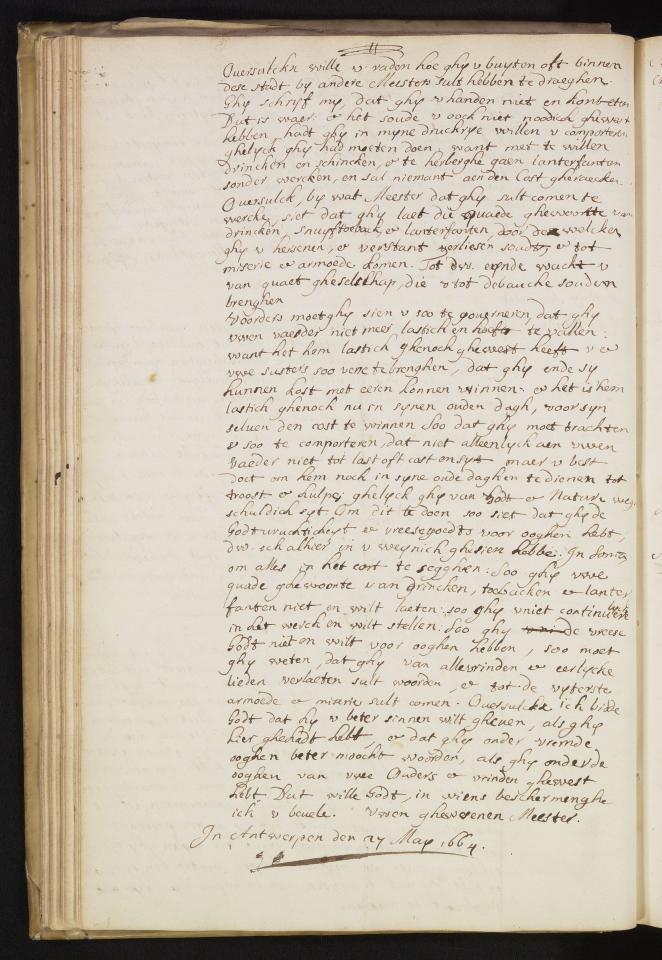 Oversulckx wille v raden hoe ghy v buyten oft binnen
dese stadt by andere Meesters sult hebben te draeghen.
Ghy schryft my, dat ghy v handen niet en kont eten
Dat is waer: & het soude v oock niet noodich gheweest
hebben, hadt ghy in myne druckrye willen v comporteren
ghelyck ghy had moeten doen, want met te willen
drincken en schincken, & te herberghe gaen lanterfanten
sonder wercken, en sal niemant aen den cost gheraecken.
Oversulck, by wat Meester dat ghy sult comen te
wercke, siet dat ghy laet die quaede ghewoonte van
drincken, snuyftoeback, & lanterfanten, door de welcken
ghy v hersenen, & verstant verliesen soudt, & tot
miserie & armoede komen. Tot dien eynde wacht v
van quaet gheselschap, die v tot debauche souden
brenghen
Voorders moet ghy sien v soo te gouverneren, dat ghy
vwen vaeder niet meer lastich en hoeft te vallen:
want het hem lastich ghenoch gheweest heeft v &
vwe susters soo verre te brenghen, dat ghy ende sy
kunnen kost met eeren konnen winnen. & het is hem
lastich ghenoch nu in synen ouden dagh, voor syn
selven den cost te winnen. Soo dat ghy moet trachten
v soo te comporteren, dat niet alleenlyck aen vwen
Vaeder niet tot last oft cost en syt maer v best
doet om hem noch in syne oude daghen te dienen tot
troost & hulpe, ghelyck ghy van Godt & Nature weghe
schuldich syt. Om dit te doen soo siet dat ghy de
Godtvruchticheyt & vreese Godts voor ooghen hebt,
dw. ick alhier in v weynich ghesien hebbe. In somma
om alles in het cort te segghen: Soo ghy vwe
quade ghewoonte van drincken, toebacken & lanter
fanten niet en wilt laeten: soo ghy v niet continuelyck
in het werck en wilt stellen: Soo ghy de vreese
Godts niet en wilt voor ooghen hebben, soo moet
ghy weten, dat ghy van alle vrinden & eerlycke
lieden verlaeten sult woorden, & tot de vyterste
armoede & miserie sult comen. Oversulckx ick bidde
Godt dat hy v beter sinnen wilt gheven, als ghy
hier ghehadt hebt, & dat ghy onder vremde
ooghen beter moocht woorden, als ghy onder de
ooghen van vwe Ouders & vrinden gheweest
hebt. Dat wille Godt, in wiens beschermenghe
ick v bevele. Vwen ghewesenen Meester.
In Antwerpen den 27 May 1664.